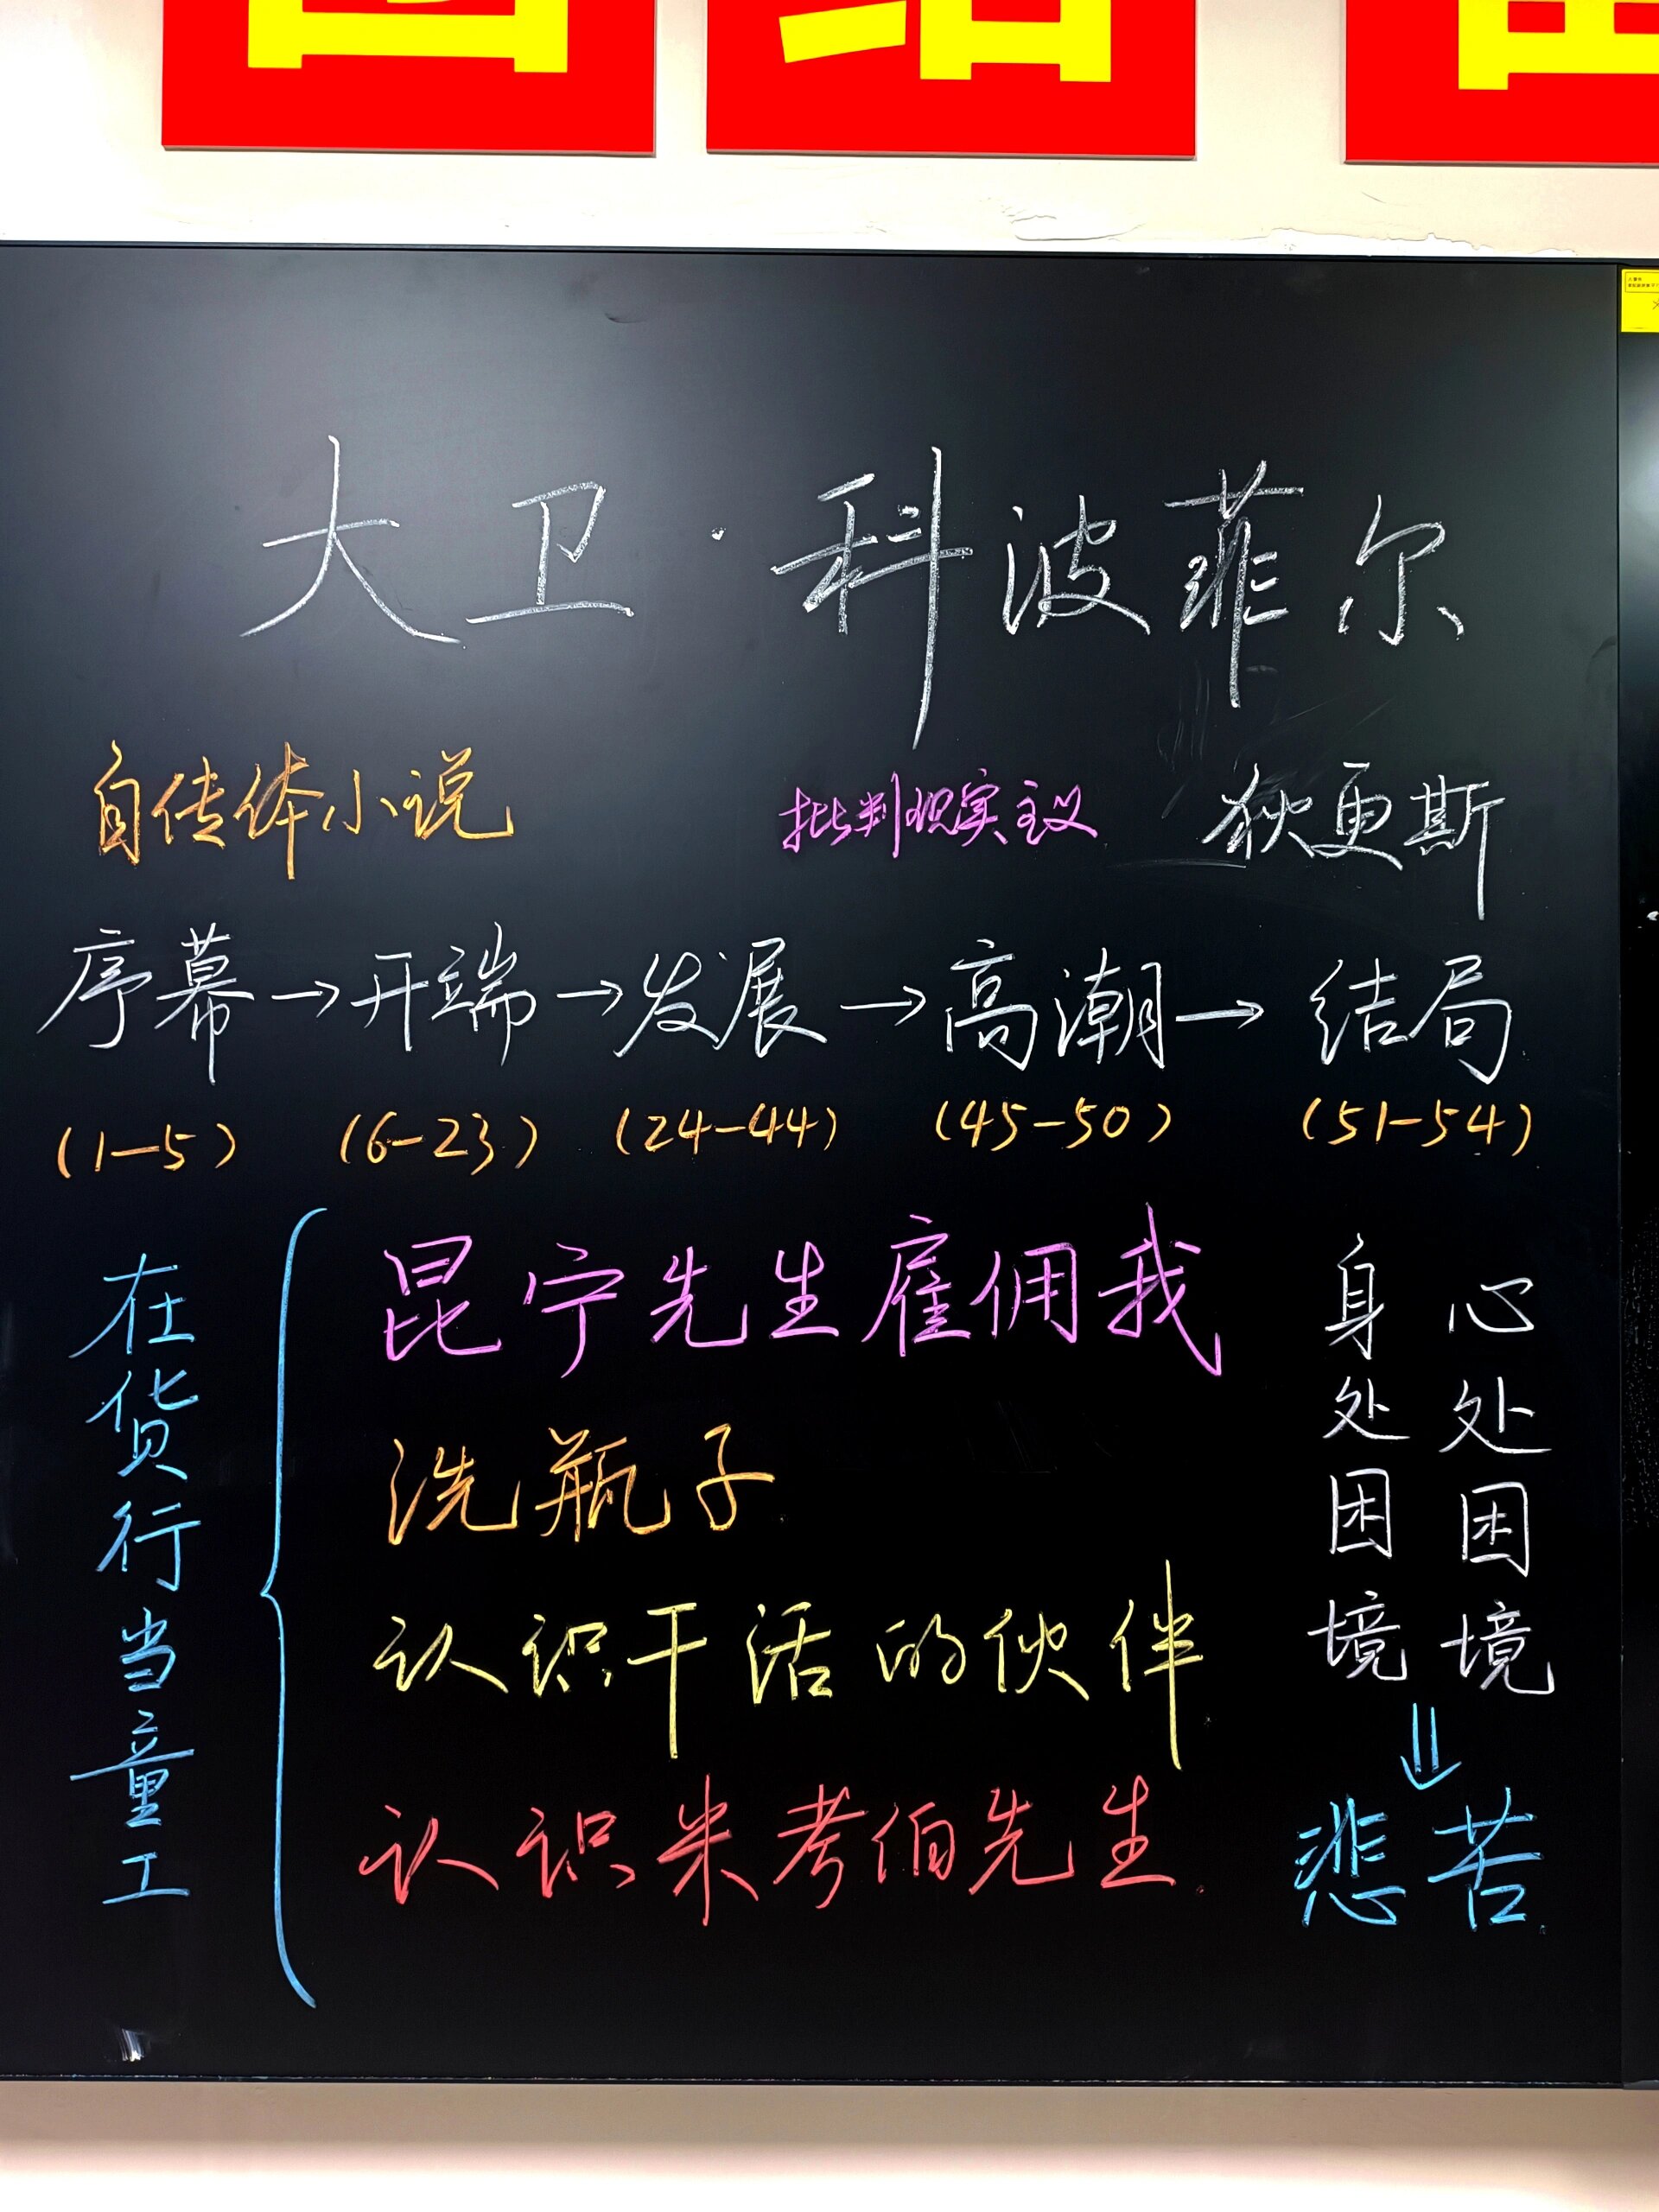 大卫·科波菲尔
自传体小说 批判现实主义 狄更斯
序幕→开端→发展→高潮→结局
(1-5) (6-23) (24-44) (45-50) (51-54)
在货行当童工
昆宁先生雇佣我
洗瓶子
认识干活的伙伴
认识米考伯先生
身处困境
心处困境
⇓
悲苦